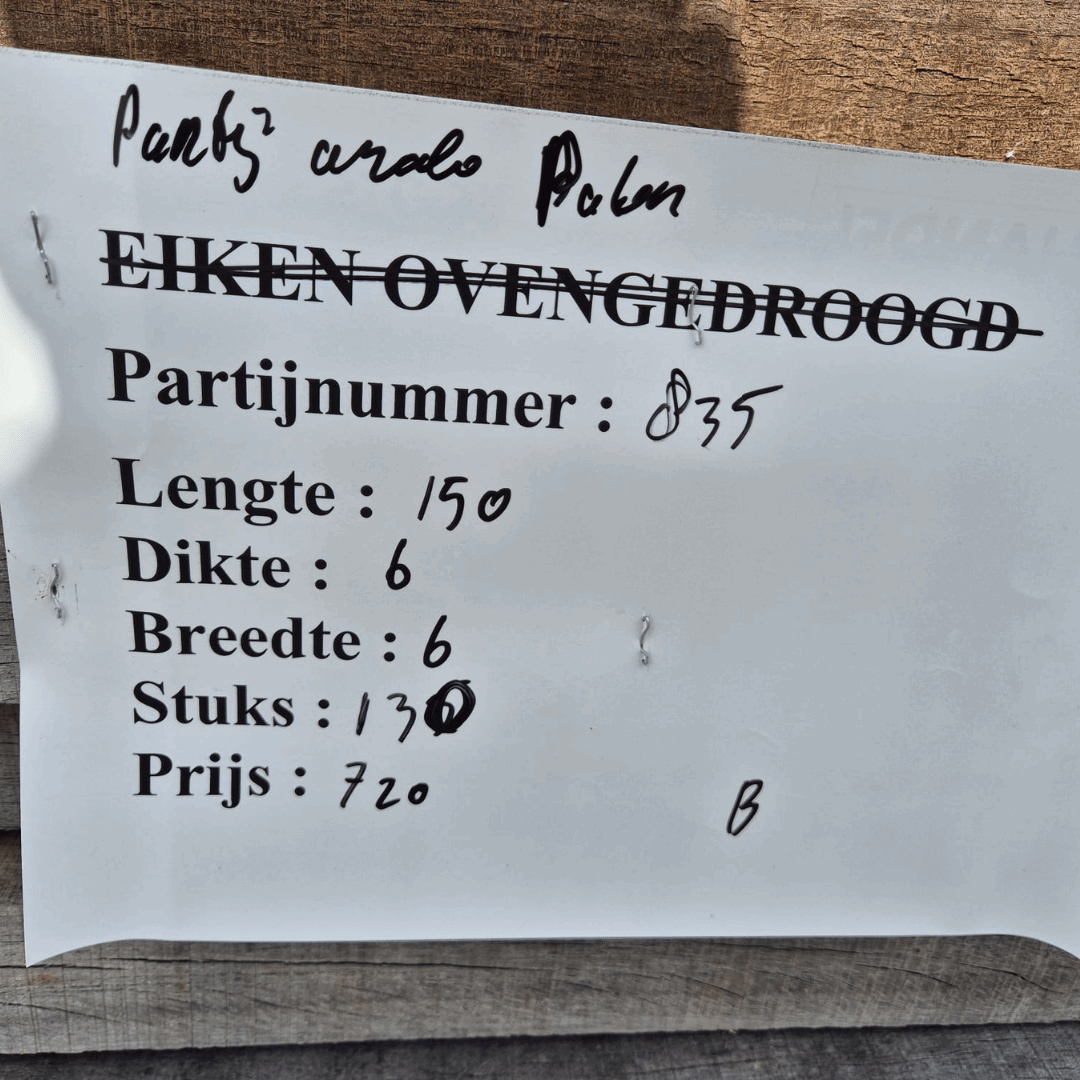 Partij azobe Palen
EIKEN OVENGEDROOGD
Partijnummer : 835
Lengte : 150
Dikte : 6
Breedte : 6
Stuks : 130
Prijs : 720
B